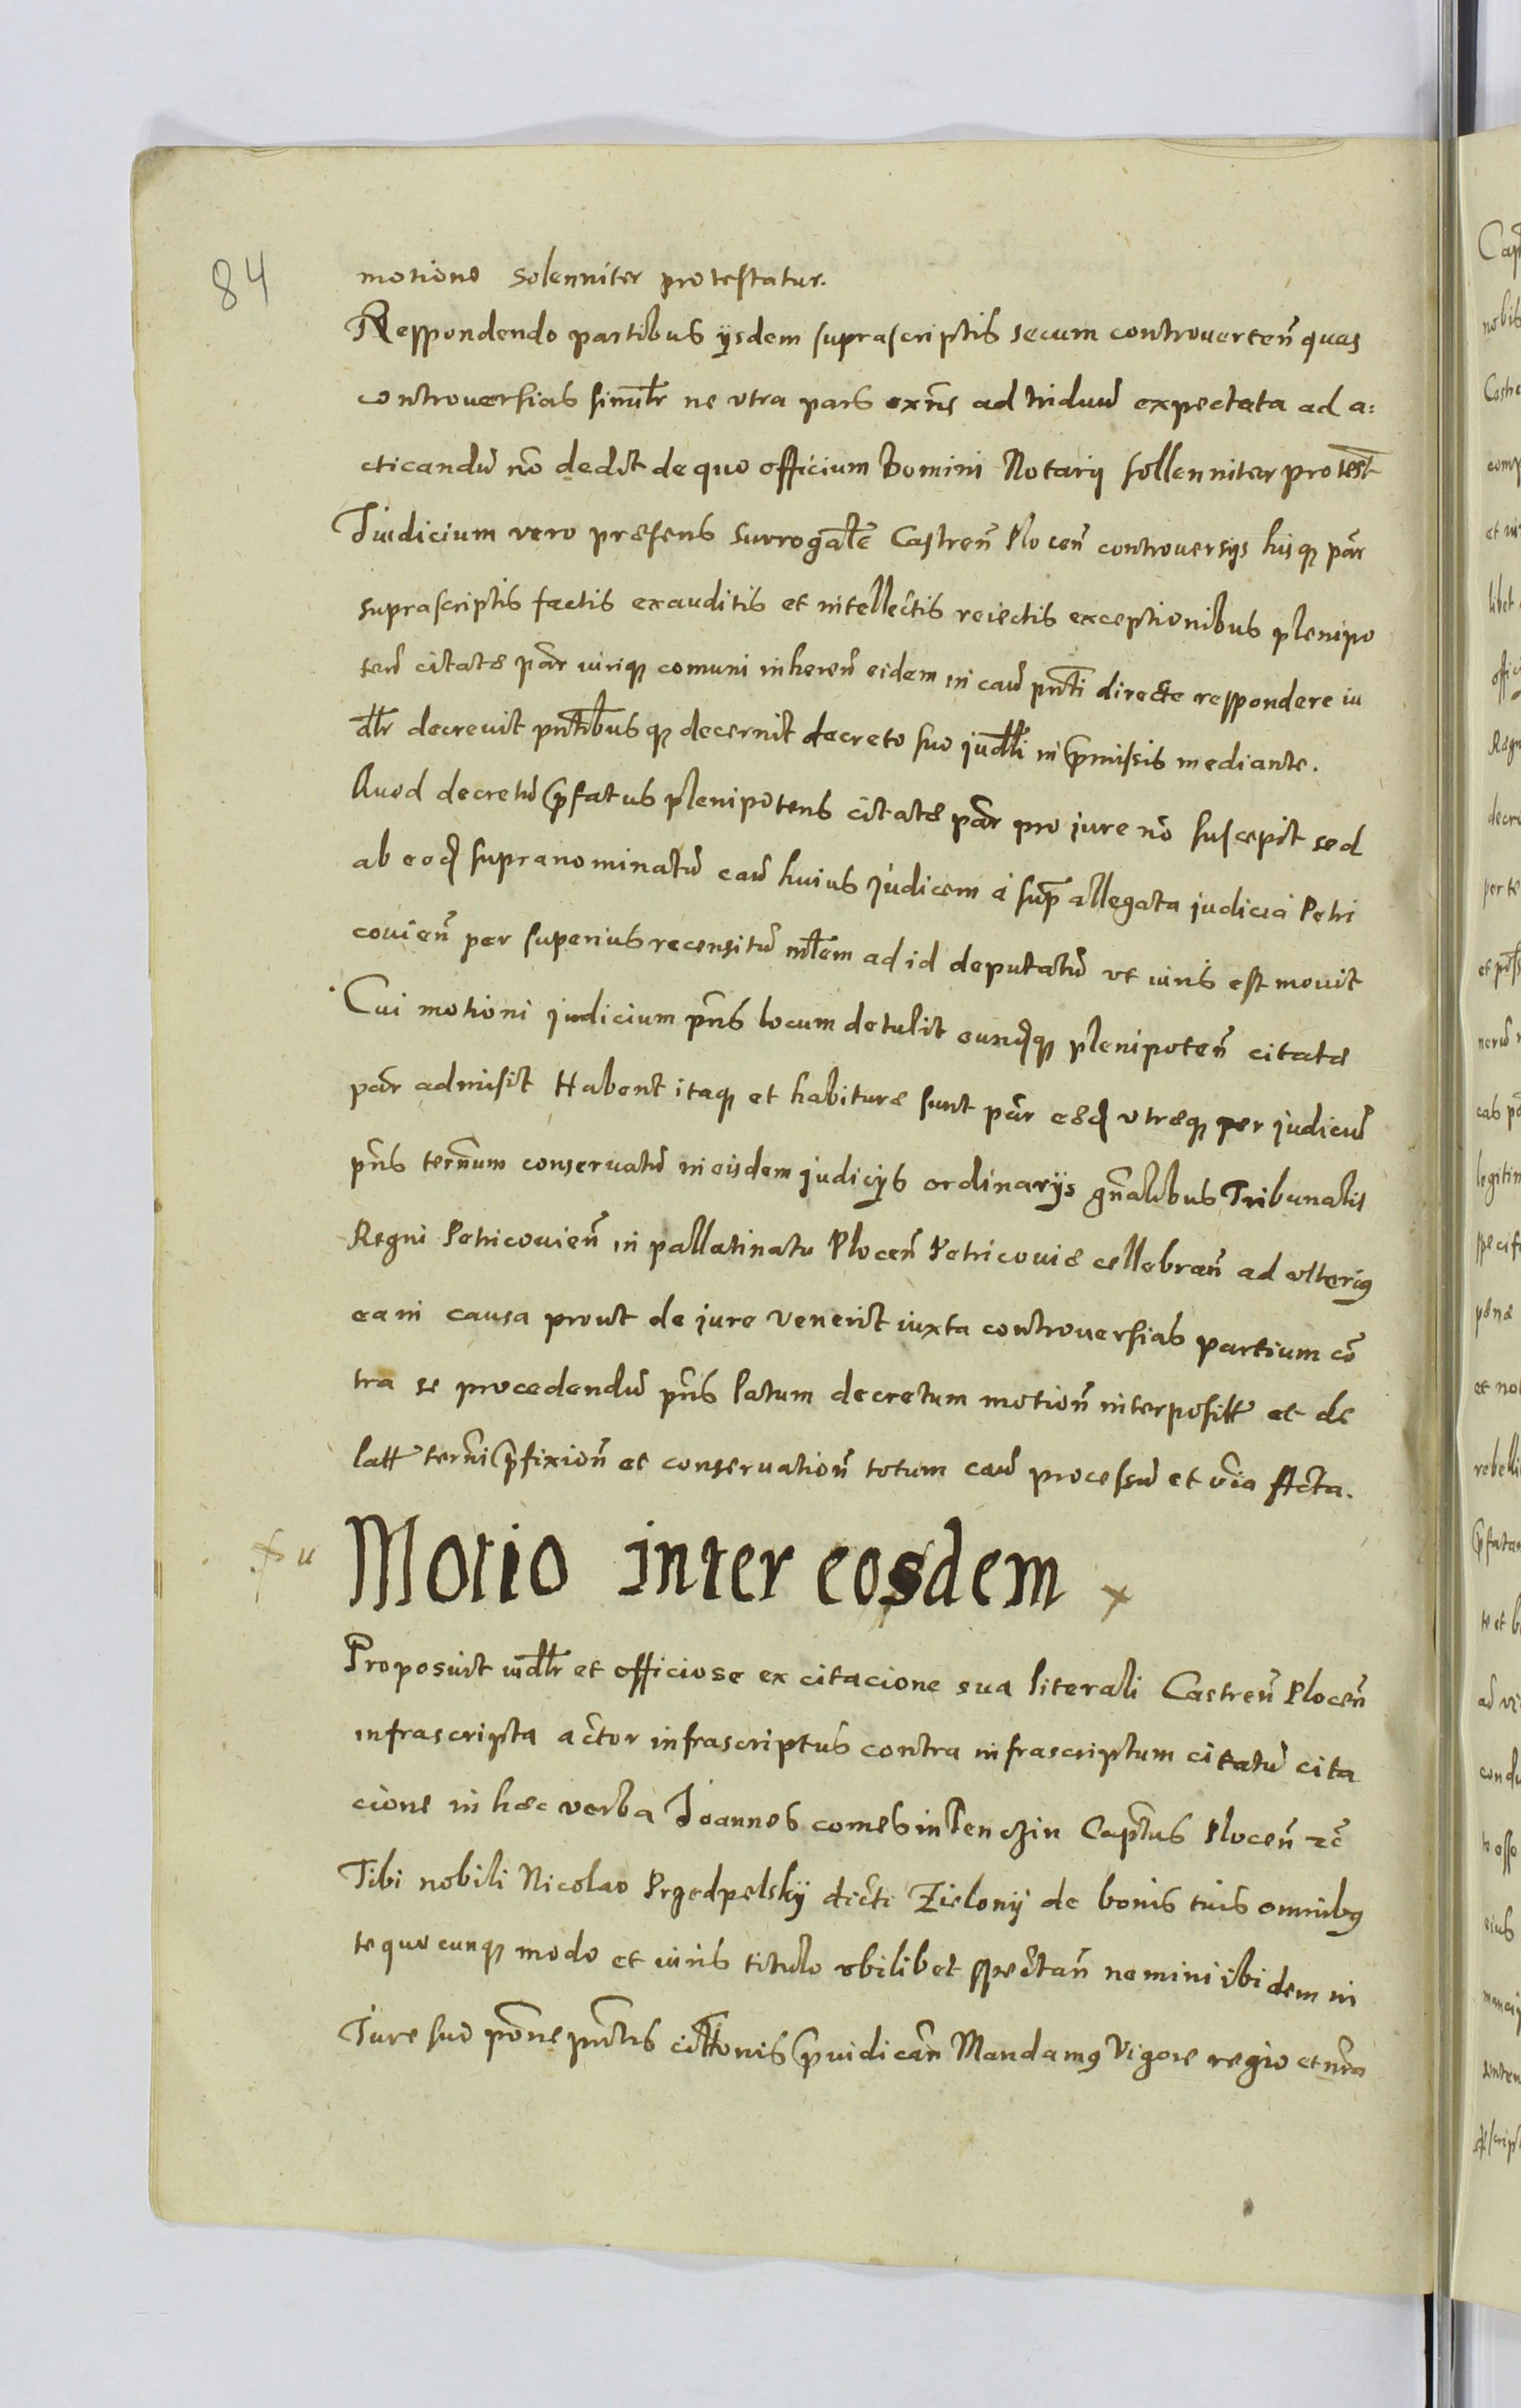 84
motione solenniter protestatur.
Respondendo partibus ijsdem suprascriptis secum controverteñ quas
controuersias simil̃r ne vtra pars exñs ad triduũ expectata ad a:
cticandũ nõ dedit de quo officium Domini Notarij sollenniter protest̃
Iudicium vero præsens surrogat̃e Castreñ Ploceñ controversijs hisq pãr
suprascriptis factis exauditis et intellectis reiectis exceptionibus plenipo
teñ citatæ pãr iurisq comuni inhereñ eidem in caũ pñti directe respondere iu
dl̃r decrevit pñtibusq decernit decreto suo judl̃i in p̃missis mediante.
Quod decretũ p̃fatus plenipotens citatæ pãr pro jure nõ suscepit sed
ab eod supranominatũ caũ huius judicem a sup̃ allegata judicia Petri
covieñ per superius recensitũ ml̃em ad id deputatũ vt iuris est movit
Cui motioni judicium pñs locum detulit eundq plenipoteñ citatæ
pãr admisit Habent itaq et habituræ sunt pãr eæd vtræq per judiciũ
pñs terñum conservatũ in eisdem judicijs ordinarijs gñalibus Tribunalis
Regni Petricovieñ in pallatinatu Ploceñ Petricoviæ cellebrañ ad vlterius
ea in causa prout de jure venerit iuxta controuersias partium cõ
tra se procedendũ pñs latum decretum motioñ interposit̃ et de
lat̃ ter̃mi p̃fixioñ et conservatioñ totum caũ processũ et õia Acta.
Motio inter eosdem
Proposuit iudl̃r et officiose ex citacione sua literali Castreñ Ploceñ
infrascripta actor infrascriptus contra infrascriptum citatũ cita
cione in hæc verba Ioannes comes in Tenczin Captus Ploceñ etc̃
Tibi nobili Nicolao Przedpelskij dicti Zielonij de bonis tuis omnibus
te quocunq modo et iuris titulo vbilibet spectañ nemini ibidem in
Iure suo põne pñtis citt̃onis p̃iudicañ Mandamus Vigore regio et nr̃a